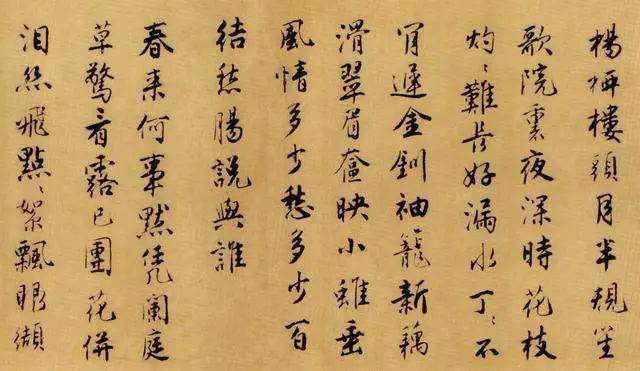 楊柳樓頭月半規笙
歌院裏夜深時花枝
灼〻難長好漏水丁〻不
肯遲金釧袖籠新藕
滑翠眉奩映小垂
風情多少愁多少百
結愁腸說與誰
春來何事默凭闌庭
草驚看露已團花併
淚絲飛點〻絮飄眼纈